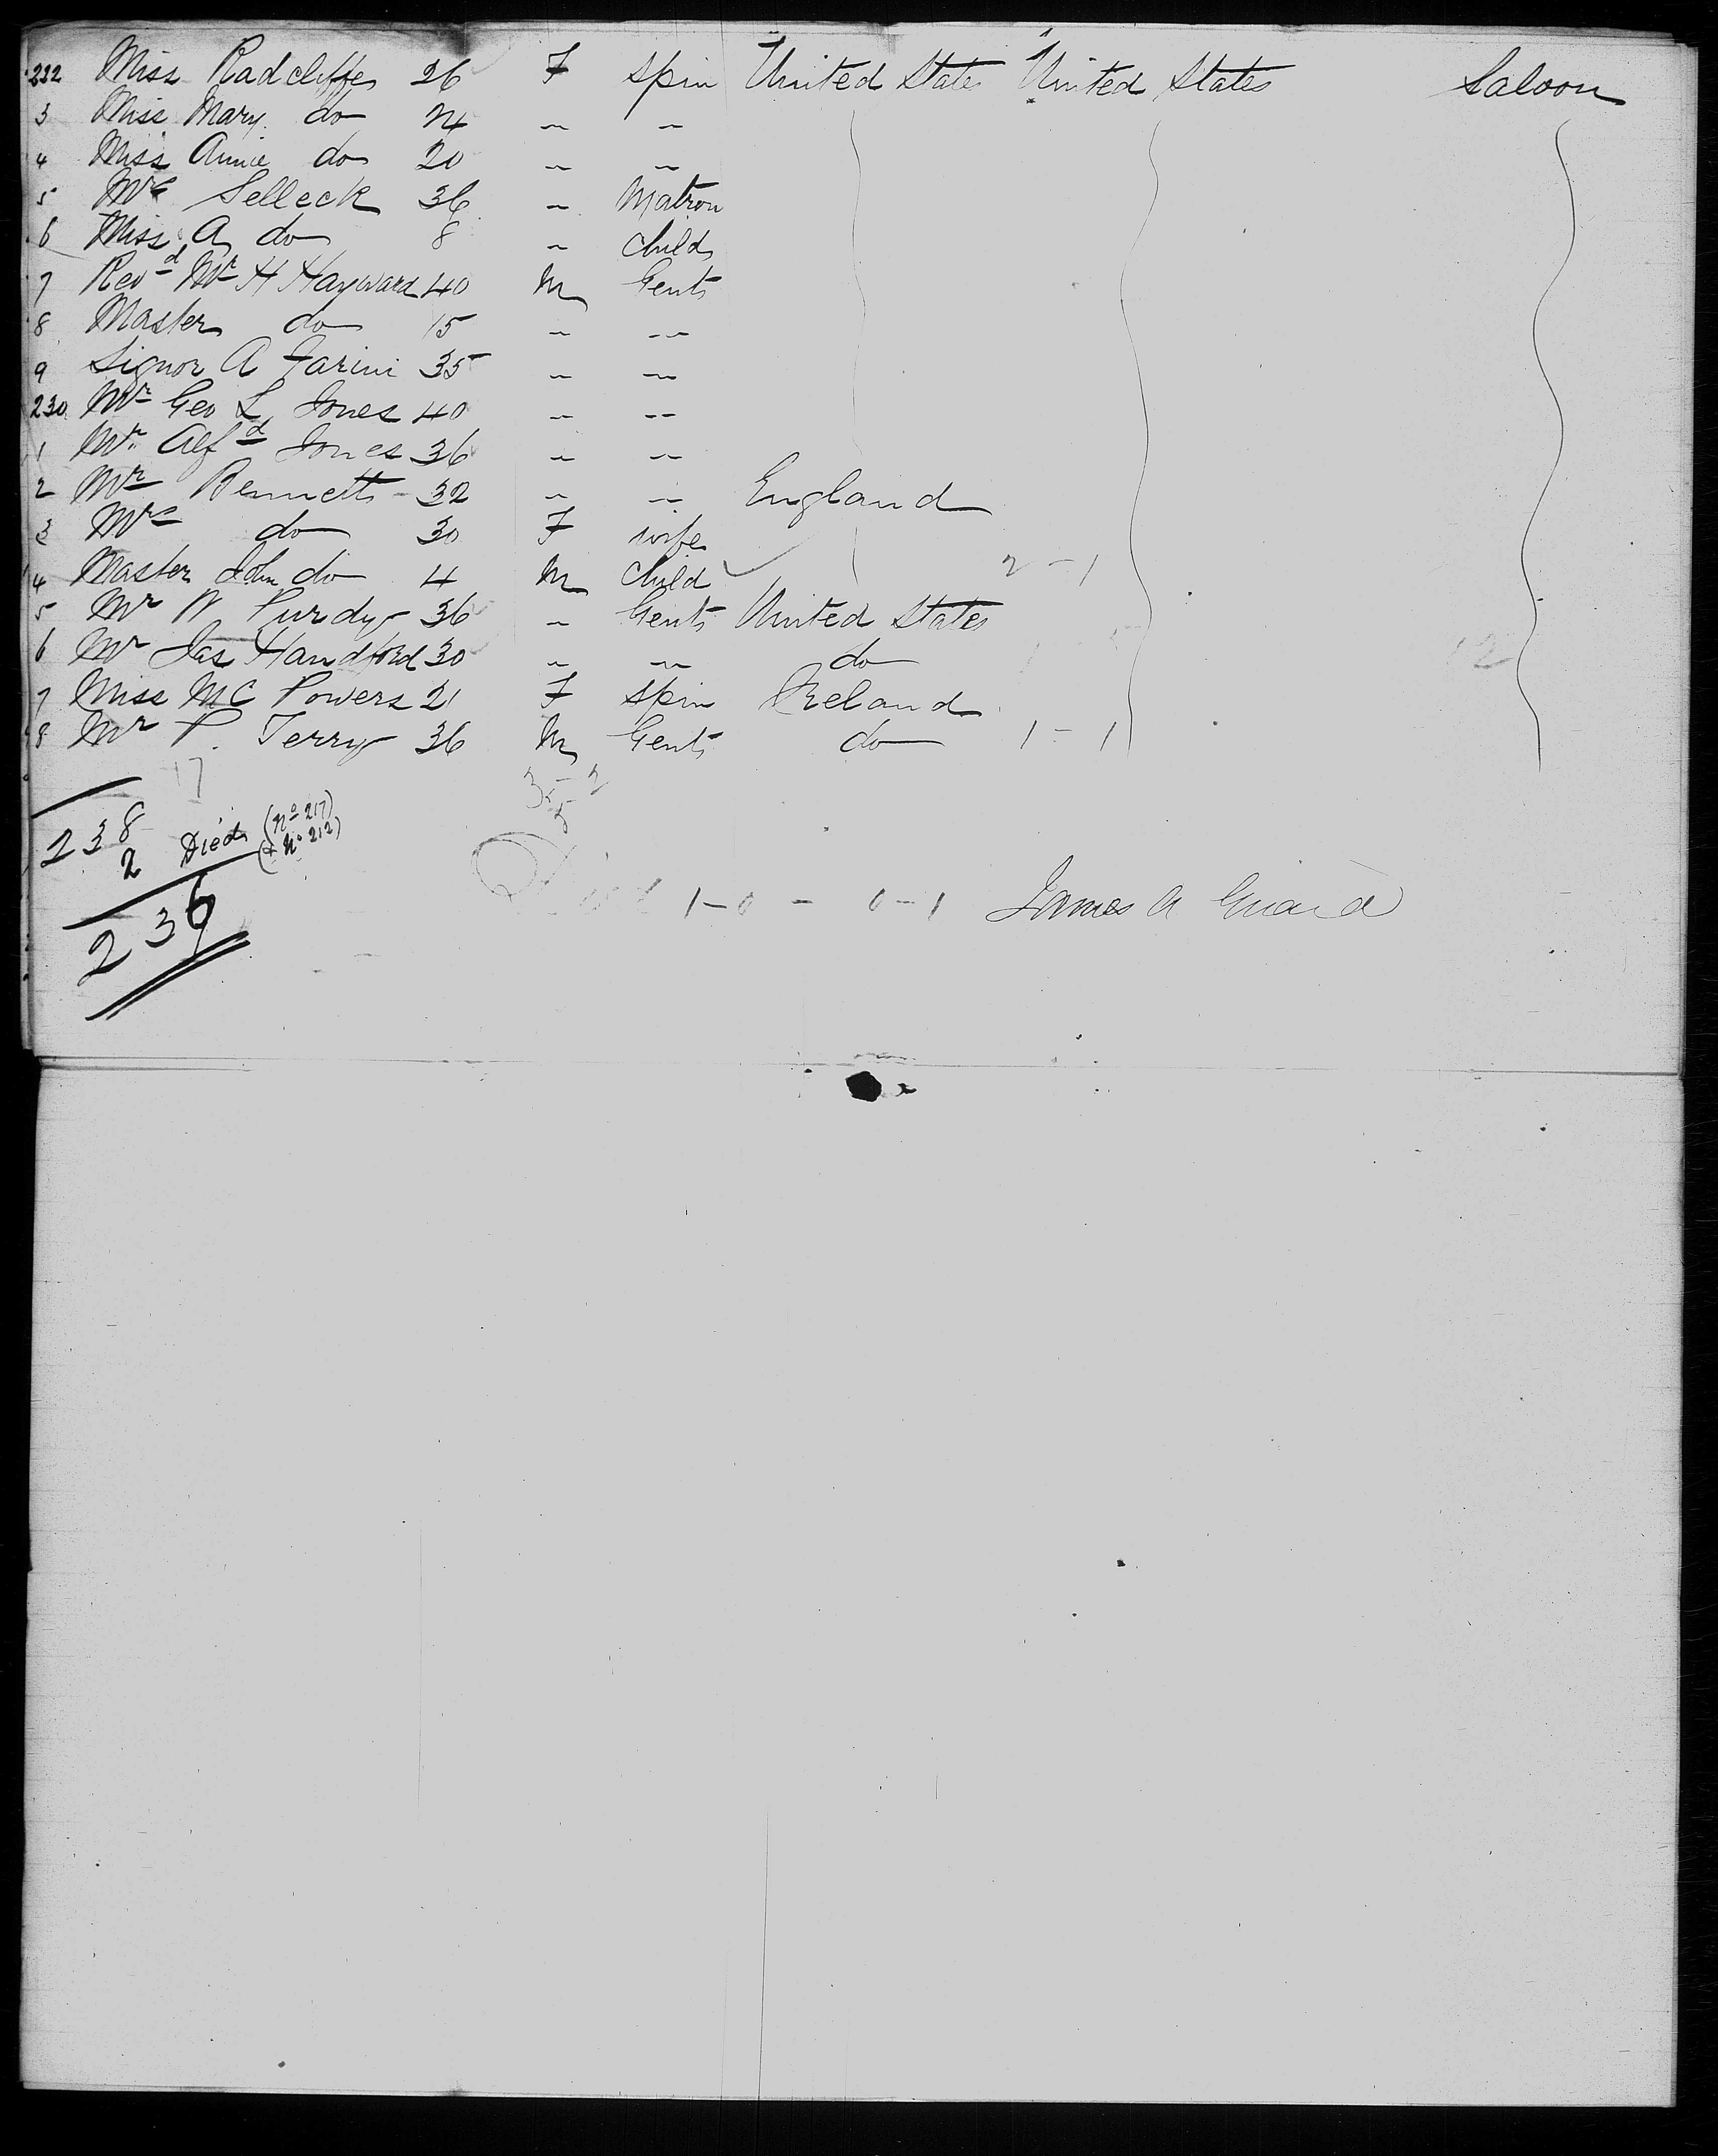 222 Miss Radcliffe 26 F Spin United States United States Saloon
3 Miss Mary do 24 " "
4 Miss Annie do 20 " "
5 Mrs Selleck 36 " Matron
6 Miss A do 8 " Child
7 Revd Mr H Hayward 40 M Gent
8 Master do 15 " "
9 Signor A Farini 35 " "
230 Mr Geo L Jones 40 " "
1 Mr Alfd Jones 36 " "
2 Mr Bennett 32 " " England
3 Mrs do 30 F wife
4 Master John do 4 M Child 2-1
5 Mr W Purdy 36 " Gent United States
6 Mr Jas Handford 30 " " do 12
7 Miss MC Powers 21 F Spin Ireland
8 Mr P. Terry 36 M Gent do 1-1
17
3-2
5
238
2 Died (No 217)
(& No 212)
236
Died 1-0 - 0-1 James A